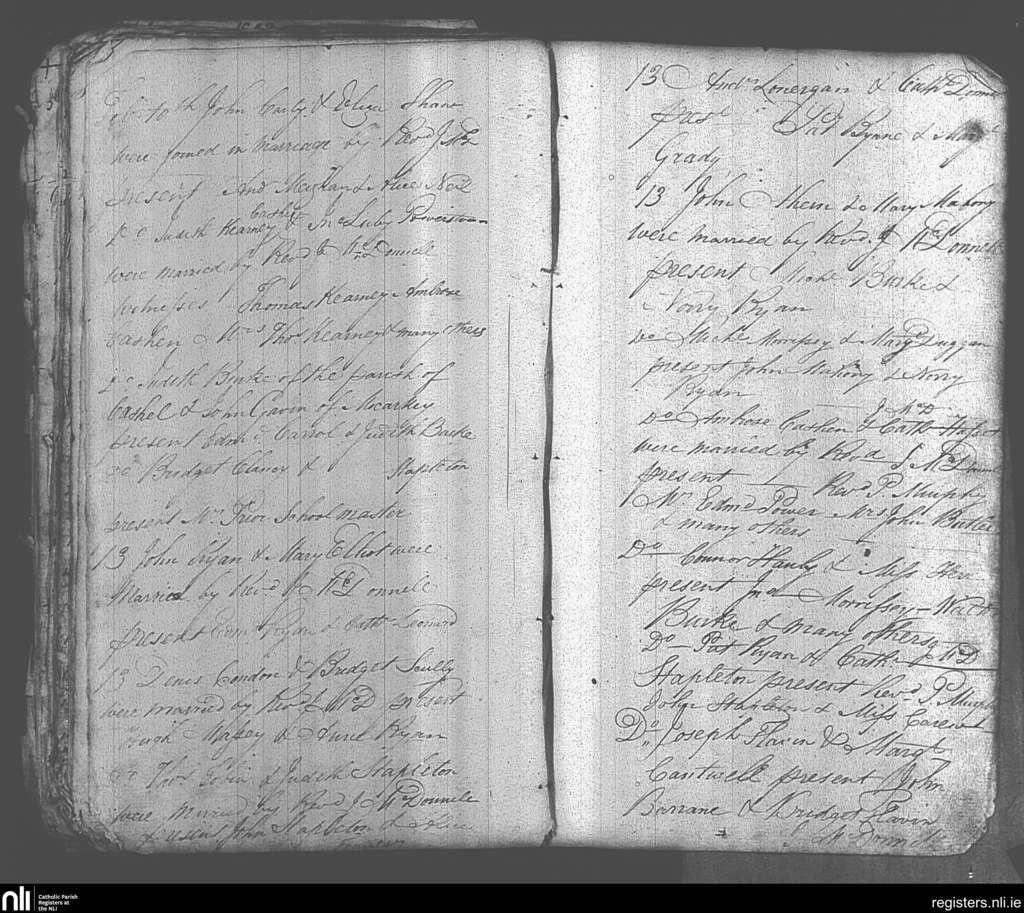 Feb 10th John Carly & Eliza Shane
were joined in marriage by Revd J. McD
present And Meighan & Alice Neil
Do Judith Kearney & Jno Luby Powerstown
Cashel
were married by Revd J McDonnell
witnesses Thomas Kearney Ambrose
Cashen Mrs Thos Kearney & many others
Do Judith Burke of the parish of
Cashel & John Gavin of Mcarkey
present Edmd Carrol & Judith Burke
Do Bridget Clancy & Stapleton
present Mr Prior School master
13 John Ryan & Mary Elliot were
Married by Revd J McDonnell
present Edm Ryan & Cath Leonard
13 Denis Condon & Bridget Scully
were married by Revd J McD present
Hugh Massey & June Ryan
Do Thos Tobin & Judith Stapleton
were married by Revd J McDonnell
John Stapleton & Alice
13 Andw Lonergan & Cath
pres Pat Byrne & Margt
Grady
13 John Ahern & Mary Mahony
were married by Revd J McDonnell
present Michl Burke &
Norry Ryan
Do Michl Morrissy & Mary Duggan
present John Mahony & Norry
Ryan
J McD
Do Ambrose Cashen & Cath
were married by Revd J McDonnell
present Revd P. Murphy
Mr Edmd Power Mrs John Butler
& many others
Do Connor Hanly & Miss
present Jno Morrissy Walt
Burke & many others
J McD
Do Pat Ryan & Cath
Stapleton present Revd P. Murphy
John Stapleton & Miss
Do Joseph Flavin & Margt
Cantwell present John
Barrane & Bridget Flavin
J McDonnell
nli
Catholic Parish
Registers at
the NLI
registers.nli.ie